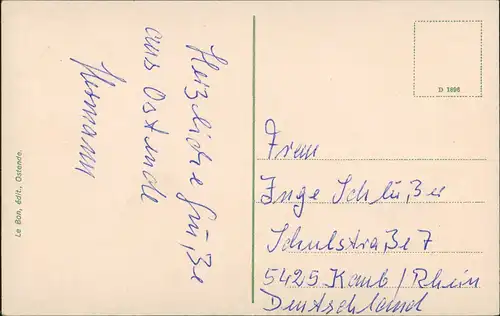 Herzliche Grüße
aus Ostende
Hermann
Le Bon, édit., Ostende.
D 1696
Frau
Inge Schlüßer
Schulstraße 7
5425 Kaub / Rhein
Deutschland